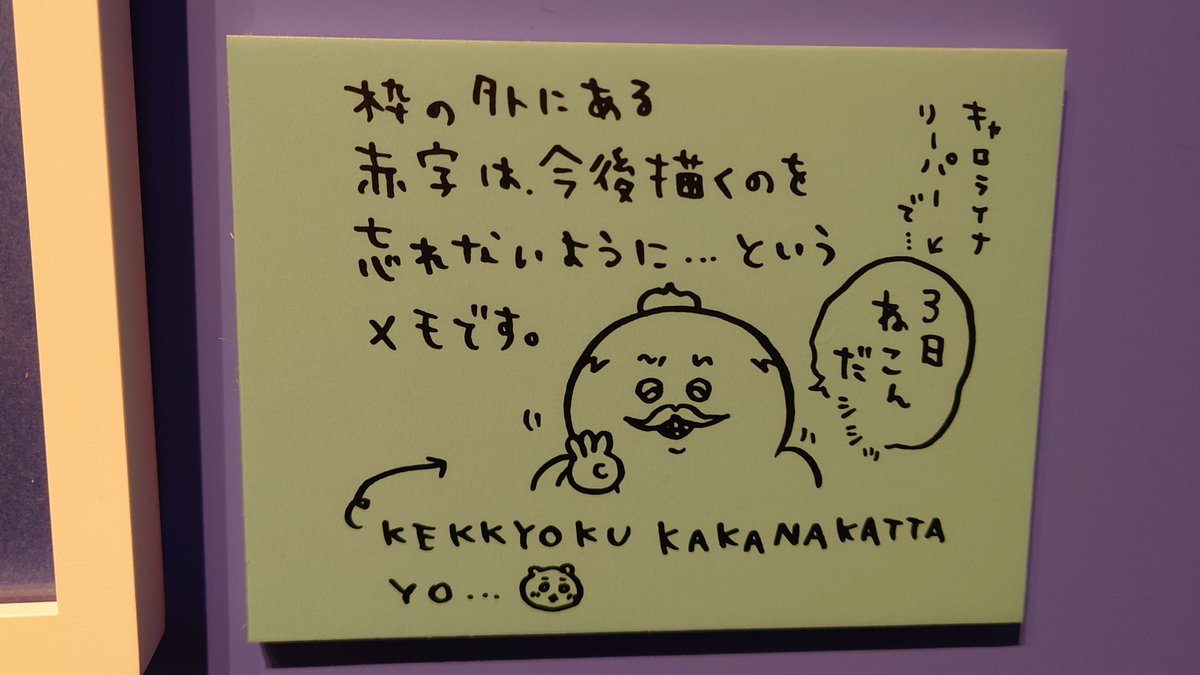 枠の外にある
赤字は、今後描くのを
忘れないように…という
メモです。
キャロライナ
リーパー
で…
3日
ねこん
だ
KEKKYOKU KAKANAKATTA
YO...